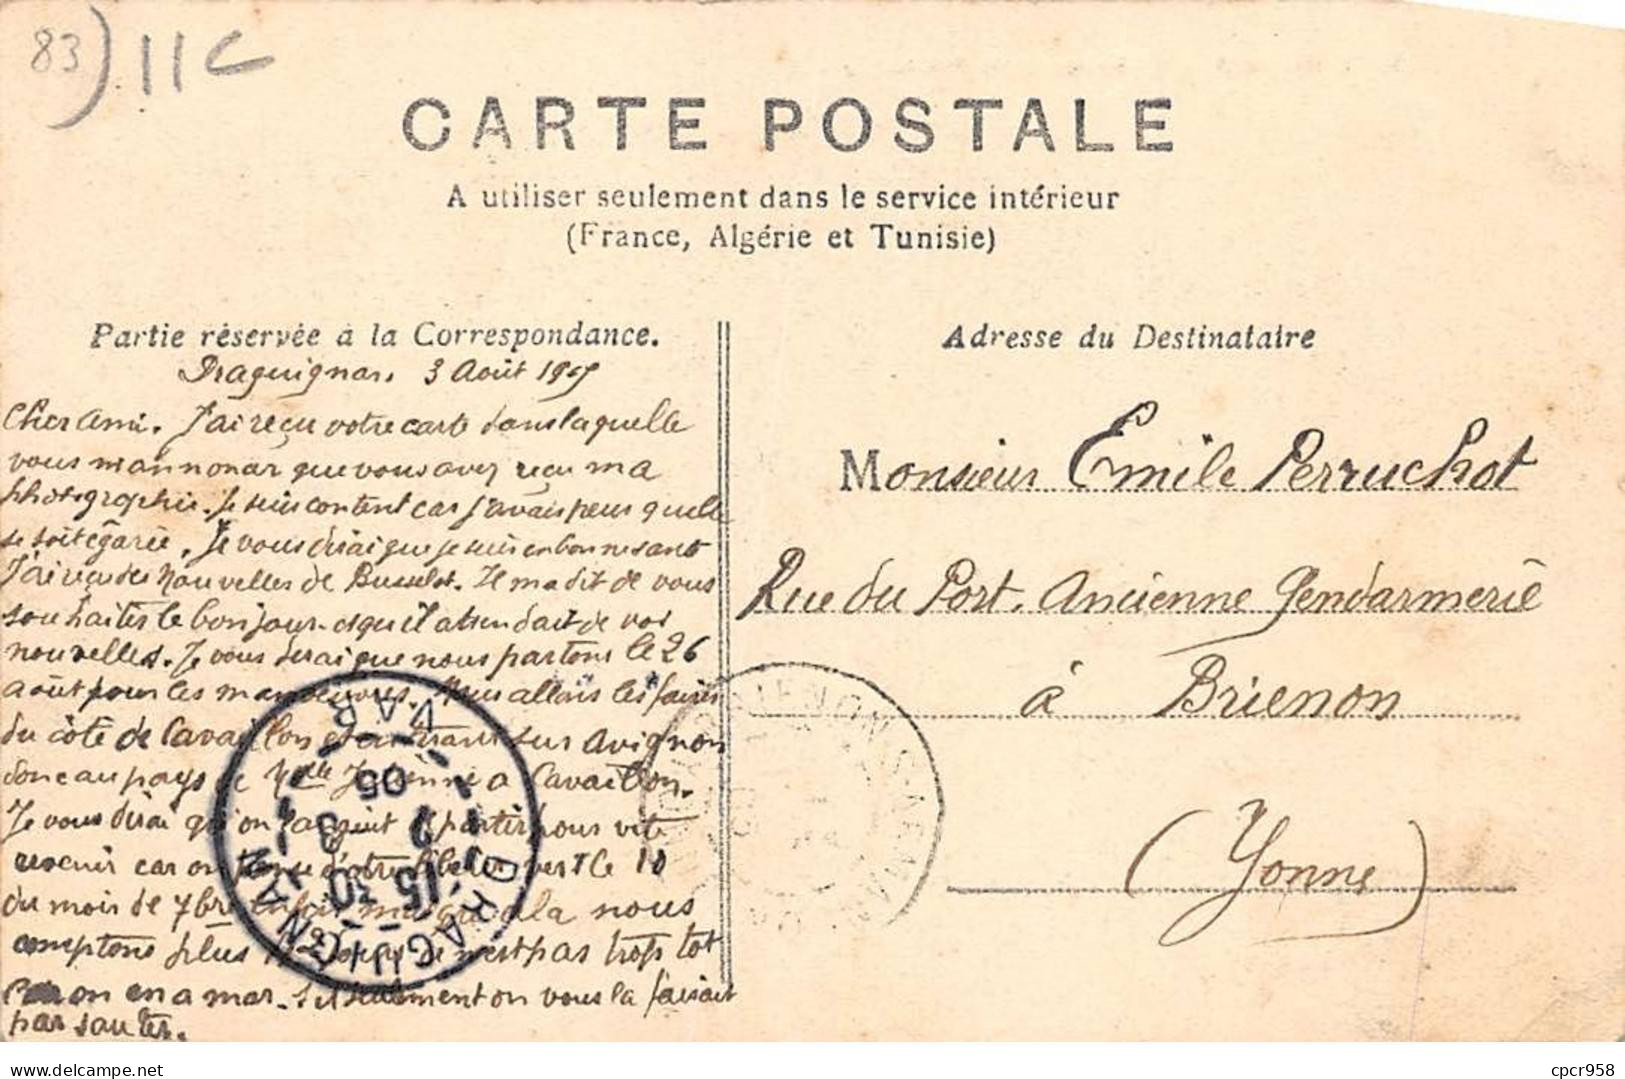 83) 11 C
CARTE POSTALE
A utiliser seulement dans le service intérieur
(France, Algérie et Tunisie)
Partie réservée à la Correspondance.
Draguignan. 3 Août 1905
Cher Ami. J'ai reçu votre carte dans laquelle
vous m'annoncer que vous avez reçu ma
photographie. Je suis content car j'avais peur quelle
se soit égarée. Je vous dirai que je suis en bonne santé
J'ai reçu des nouvelles de Busselot. Il ma dit de vous
souhaiter le bonjour et qu'il attendait de vos
nouvelles. Je vous dirai que nous partons le 26
août pour les manoeuvres. Nous allons les faires
du côté de Cavaillon et en tirant sur Avignon
donc au pays de à Cavaillon.
Je vous dirai qu'on partir pour vite
revenir car on pense d'être libérer vers le 10
du mois de 7bre enfin malgré cela nous
comptons plus jours ce n'est pas trop tot
car on en a mar. seulement on vous la faisait
par sauter.
Adresse du Destinataire
Monsieur Emile Perruchot
Rue du Port. Ancienne Gendarmerie
à Brienon
(Yonne)
DRAGUIGNAN
VAR
15 30
3
05
cpcr958